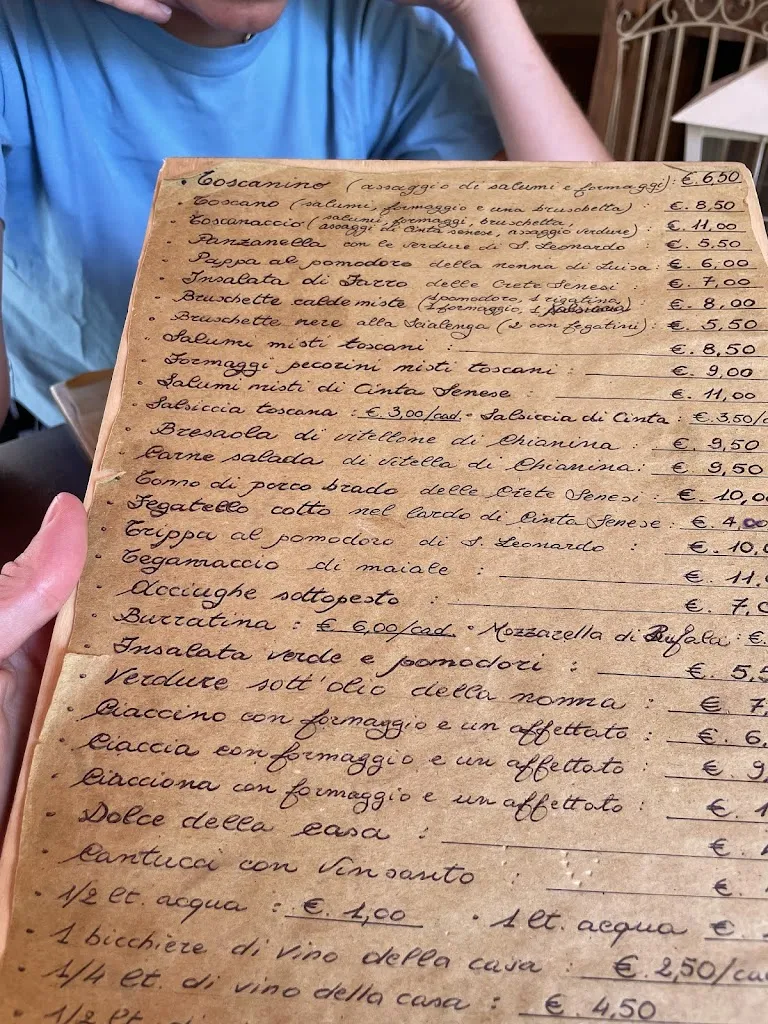 • Toscanino (assaggio di salumi e formaggi): €. 6,50
• Toscano (salumi, formaggio e una bruschetta) : €. 8,50
• Toscanaccio (salumi, formaggi, bruschetta, assaggi di Cinta senese, assaggio verdure) : €. 11,00
• Panzanella con le verdure di S. Leonardo : €. 5,50
• Pappa al pomodoro della nonna di Luisa : €. 6,00
• Insalata di Farro delle Crete Senesi : €. 7,00
• Bruschette calde miste (1 pomodoro, 1 rigatino, 1 formaggio, 1 salsiccia) €. 8,00
• Bruschette nere alla Scialenga (2 con fegatini) : €. 5,50
• Salumi misti toscani : €. 8,50
• Formaggi pecorini misti toscani : €. 9,00
• Salumi misti di Cinta Senese : €. 11,00
• Salsiccia toscana : €. 3,00/cad. • Salsiccia di Cinta : €. 3,50/c
• Bresaola di vitellone di Chianina : €. 9,50
• Carne salada di vitella di Chianina : €. 9,50
• Tonno di porco brado delle Crete Senesi : €. 10,0
• Fegatello cotto nel lardo di Cinta Senese : €. 4,00
• Trippa al pomodoro di S. Leonardo : €. 10,0
• Tegamaccio di maiale : €. 11,
• Acciughe sottopesto : €. 7,0
• Burratina : €. 6,00/cad. • Mozzarella di Bufala : €.
• Insalata verde e pomodori : €. 5,5
• Verdure sott'olio della nonna : €. 7,
• Ciaccino con formaggio e un affettato : €. 6,
• Ciaccia con formaggio e un affettato : €. 9,
• Ciacciona con formaggio e un affettato : €. 1
• Dolce della casa : €.
• Cantucci con Vin santo : €.
• 1/2 lt. acqua : €. 1,00 • 1 lt. acqua €
• 1 bicchiere di vino della casa : €. 2,50/ca
• 1/4 lt. di vino della casa : €. 4,50
• 1/2 lt.